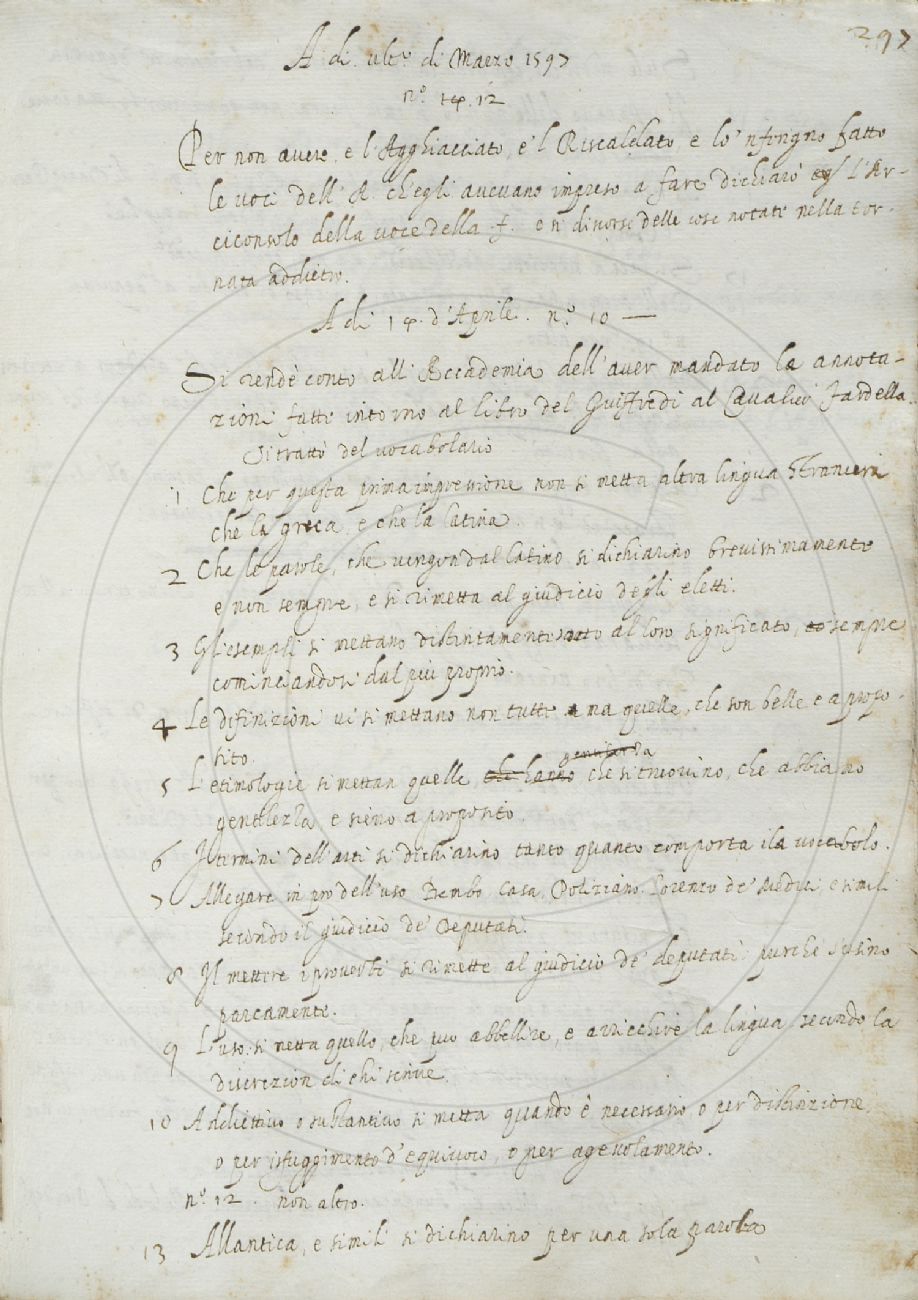 297
A di ult.º di Marzo 1597
n.º 14. 12
Per non avere, e l'Agghiacciato, e 'l Riscaldato, e lo 'nferigno fatto
le voci dell' A. ch'egli avevano impreso a fare dichiarò l'Ar-
ciconsolo della voce della f. e si discorse delle cose notate nella tor-
nata addietro.
A di 14. d'Aprile. n.º 10 —
Si rendè conto all' Accademia dell'aver mandato le annota-
zioni fatte intorno al libro del Guiffredi al Cavalier Fardella.
Si trattò del vocabolario
1 Che per questa prima impressione non si metta altra lingua straniera
che la greca, e che la latina.
2 Che le parole, che vengon dal latino si dichiarino brevissimamente
e non sempre, e si rimetta al giudicio degli eletti.
3 Gli esempli si mettano distintamente sotto al loro significato, sempre
cominciandosi dal più proprio.
4 Le difinizioni vi si mettano non tutte ma quelle, che son belle e a propo-
sito.
gentilezza
5 L'etimologie si mettan quelle, che hanno che si truovino, che abbiano
gentilezza, e sieno a proposito.
6 I termini dell'arti si dichiarino tanto quanto comporta il vocabolo.
7 Allegare in pro dell'uso Bembo, Casa, Poliziano, Lorenzo de' Medici, e simili
secondo il giudicio de' Deputati.
8 Il mettere i proverbi si rimette al giudicio de' deputati purchè s'usino
parcamente.
9 L'uso: si metta quello, che può abbellire, e arricchire la lingua secondo la
discrezion di chi scrive.
10 Addiettivo o sustantivo si metta quando è necessario o per distinzione,
o per isfuggimento d'equivoco, o per agevolamento.
n.º 12. non altro.
13 All'antica, e simili si dichiarino per una sola parola